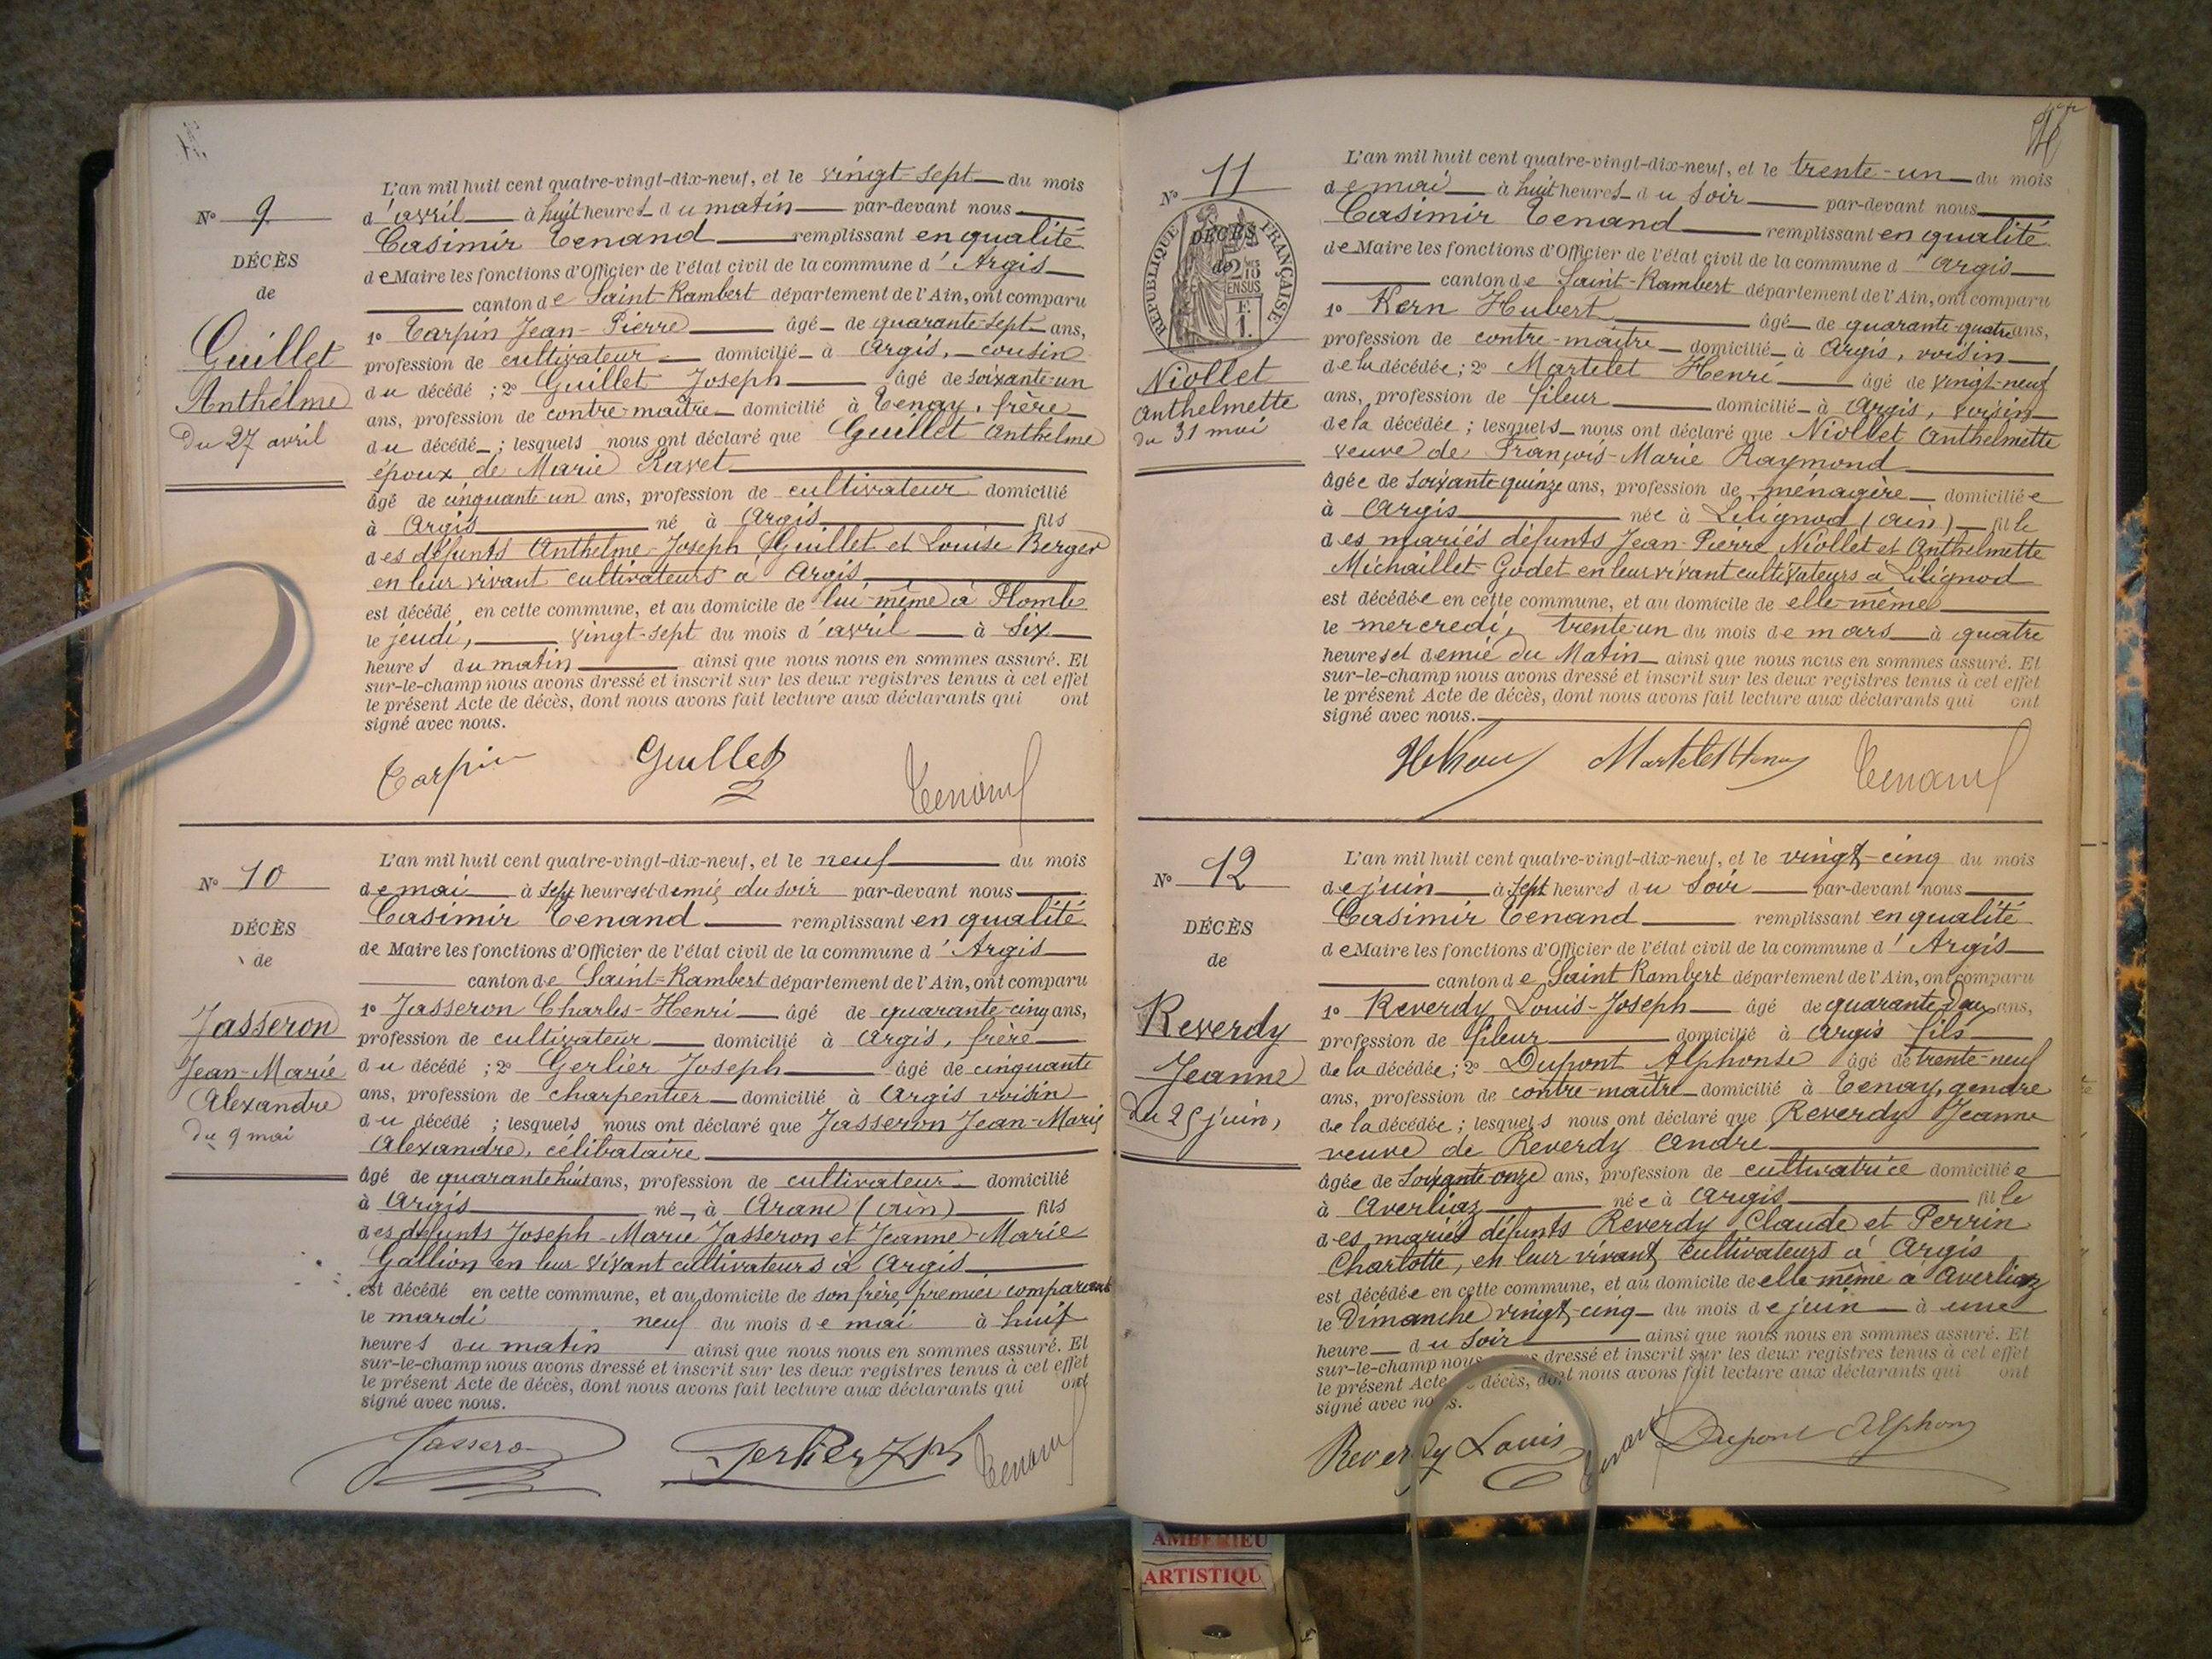 N° 9
DÉCÈS
de
Guillet
Anthelme
Du 27 avril
L'an mil huit cent quatre-vingt-dix-neuf, et le vingt-sept du mois
d'avril à huit heures du matin par-devant nous
Casimir Tenand remplissant en qualité
de Maire les fonctions d'Officier de l'état civil de la commune d'Argis
canton de Saint-Rambert département de l'Ain, ont comparu
1° Carpin Jean-Pierre âgé de quarante-sept ans,
profession de cultivateur domicilié à Argis, cousin
du décédé ; 2° Guillet Joseph âgé de soixante-un
ans, profession de contre-maître domicilié à Tenay, frère
du décédé ; lesquels nous ont déclaré que Guillet Anthelme
époux de Marie Ravet
âgé de cinquante-un ans, profession de cultivateur domicilié
à Argis né à Argis fils
des défunts Anthelme-Joseph Guillet et Louise Berger
en leur vivant cultivateurs à Argis
est décédé en cette commune, et au domicile de lui-même à Plomb
le jeudi, vingt-sept du mois d'avril à six
heures du matin ainsi que nous nous en sommes assuré. Et
sur-le-champ nous avons dressé et inscrit sur les deux registres tenus à cet effet
le présent Acte de décès, dont nous avons fait lecture aux déclarants qui ont
signé avec nous.
Carpin Guillet Tenand
N° 10
DÉCÈS
de
Jasseron
Jean-Marie
Alexandre
du 9 mai
L'an mil huit cent quatre-vingt-dix-neuf, et le neuf du mois
de mai à sept heures et demie du soir par-devant nous
Casimir Tenand remplissant en qualité
de Maire les fonctions d'Officier de l'état civil de la commune d'Argis
canton de Saint-Rambert département de l'Ain, ont comparu
1° Jasseron Charles-Henri âgé de quarante-cinq ans,
profession de cultivateur domicilié à Argis, frère
du décédé ; 2° Gerlier Joseph âgé de cinquante
ans, profession de charpentier domicilié à Argis voisin
du décédé ; lesquels nous ont déclaré que Jasseron Jean-Marie
Alexandre, célibataire
âgé de quarante huit ans, profession de cultivateur domicilié
à Argis né à Aranc (Ain) fils
des défunts Joseph-Marie Jasseron et Jeanne-Marie
Gallion en leur vivant cultivateurs à Argis
est décédé en cette commune, et au domicile de son frère, premier comparant
le mardi neuf du mois de mai à huit
heures du matin ainsi que nous nous en sommes assuré. Et
sur-le-champ nous avons dressé et inscrit sur les deux registres tenus à cet effet
le présent Acte de décès, dont nous avons fait lecture aux déclarants qui ont
signé avec nous.
Jassero Gerlier Jph Tenand
N° 11
DÉCÈS
de
RÉPUBLIQUE FRANÇAISE
2/10 EN SUS
F. 1.
Niollet
Anthelmette
du 31 mai
L'an mil huit cent quatre-vingt-dix-neuf, et le trente-un du mois
de mai à huit heures du soir par-devant nous
Casimir Tenand remplissant en qualité
de Maire les fonctions d'Officier de l'état civil de la commune d'Argis
canton de Saint-Rambert département de l'Ain, ont comparu
1° Kern Hubert âgé de quarante-quatre ans,
profession de contre-maître domicilié à Argis, voisin
de la décédée ; 2° Martelet Henri âgé de vingt-neuf
ans, profession de fileur domicilié à Argis, voisin
de la décédée ; lesquels nous ont déclaré que Niollet Anthelmette
veuve de François-Marie Raymond
âgée de soixante-quinze ans, profession de ménagère domiciliée
à Argis née à Lilignod (Ain) fille
des mariés défunts Jean-Pierre Niollet et Anthelmette
Michaillet-Godet en leur vivant cultivateurs à Lilignod
est décédée en cette commune, et au domicile de elle-même
le mercredi, trente-un du mois de mars à quatre
heures et demie du Matin ainsi que nous nous en sommes assuré. Et
sur-le-champ nous avons dressé et inscrit sur les deux registres tenus à cet effet
le présent Acte de décès, dont nous avons fait lecture aux déclarants qui ont
signé avec nous.
Martelet Henri Tenand
N° 12
DÉCÈS
de
Reverdy
Jeanne
du 25 juin,
L'an mil huit cent quatre-vingt-dix-neuf, et le vingt-cinq du mois
de juin à sept heures du soir par-devant nous
Casimir Tenand remplissant en qualité
de Maire les fonctions d'Officier de l'état civil de la commune d'Argis
canton de Saint Rambert département de l'Ain, ont comparu
1° Reverdy Louis-Joseph âgé de quarante-deux ans,
profession de fileur domicilié à Argis fils
de la décédée ; 2° Dupont Alphonse âgé de trente-neuf
ans, profession de contre-maître domicilié à Tenay, gendre
de la décédée ; lesquels nous ont déclaré que Reverdy Jeanne
veuve de Reverdy André
âgée de soixante-onze ans, profession de cultivatrice domiciliée
à Averliaz née à Argis fille
des mariés défunts Reverdy Claude et Perrin
Charlotte, en leur vivant cultivateurs à Argis
est décédée en cette commune, et au domicile de elle-même à Averliaz
le Dimanche vingt-cinq du mois de juin à une
heure du soir ainsi que nous nous en sommes assuré. Et
sur-le-champ nous dressé et inscrit sur les deux registres tenus à cet effet
le présent Acte décès, dont nous avons fait lecture aux déclarants qui ont
signé avec nous.
Reverdy Louis Tenand Dupont Alphons
AMBERIEU
ARTISTIQU